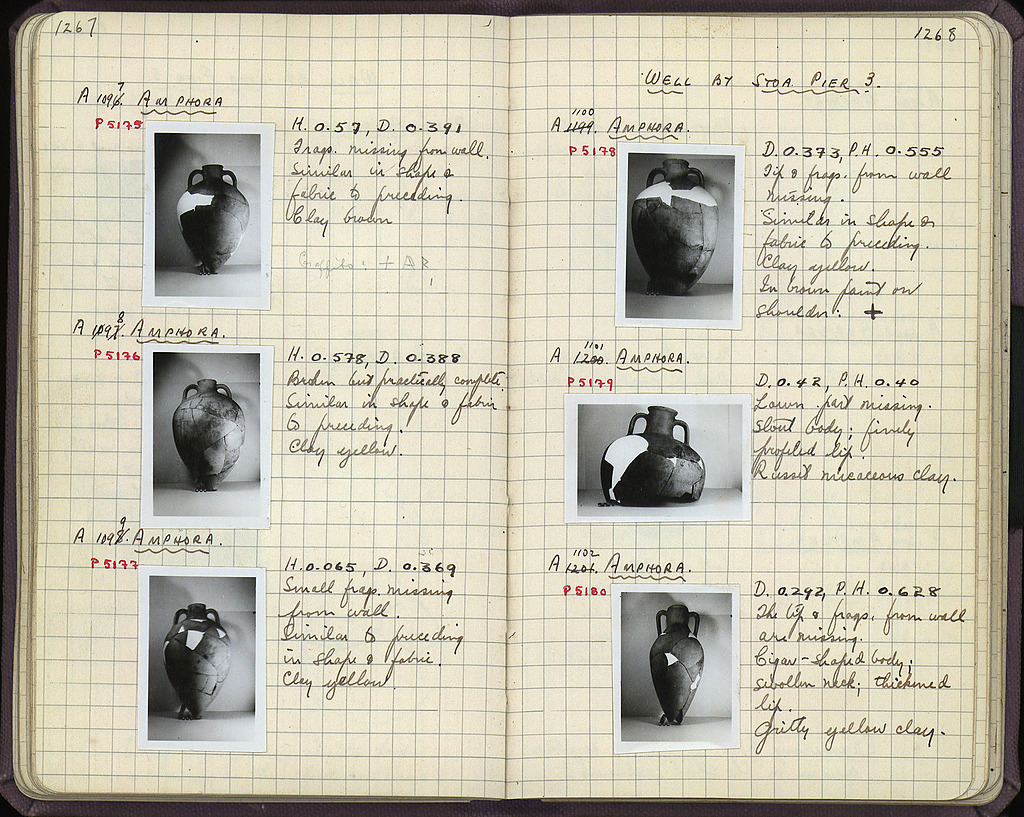 1267
A 1097. AMPHORA
P 5175
H. 0.57, D. 0.391
Frags. missing from wall.
Similar in shape &
fabric to preceding.
Clay brown
Graffito: + AR
A 1098. AMPHORA.
P 5176
H. 0.578, D. 0.388
Broken but practically complete.
Similar in shape & fabric
to preceding.
Clay yellow.
A 1099. AMPHORA.
P 5177
H. 0.065, D. 0.369
Small frags. missing
from wall.
Similar to preceding
in shape & fabric.
Clay yellow.
1268
WELL BY STOA PIER 3.
1100
A 1199. AMPHORA.
P 5178
D. 0.373, P.H. 0.555
Tip & frags. from wall
missing.
Similar in shape &
fabric to preceding.
Clay yellow.
In brown paint on
shoulder: +
1101
A 1200. AMPHORA.
P 5179
D. 0.42, P.H. 0.40
Lower part missing.
Stout body; finely
profiled lip.
Russet micaceous clay.
1102
A 1201. AMPHORA.
P 5180
D. 0.292, P.H. 0.628
The tip & frags. from wall
are missing.
Cigar-shaped body;
swollen neck; thickened
lip.
Gritty yellow clay.